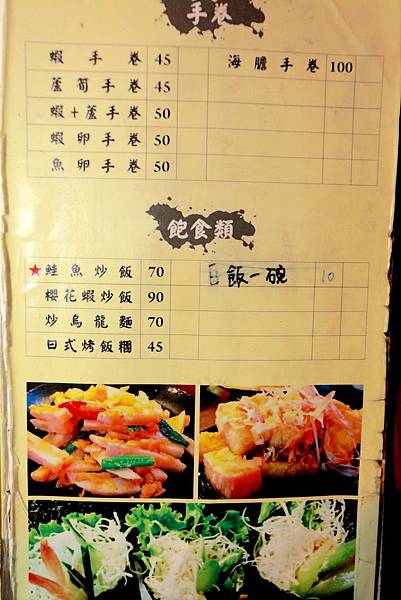 手卷
蝦手卷 45 海膽手卷 100
蘆筍手卷 45
蝦+蘆手卷 50
蝦卵手卷 50
魚卵手卷 50
飽食類
★鮭魚炒飯 70 白飯一碗 10
櫻花蝦炒飯 90
炒烏龍麵 70
日式烤飯糰 45